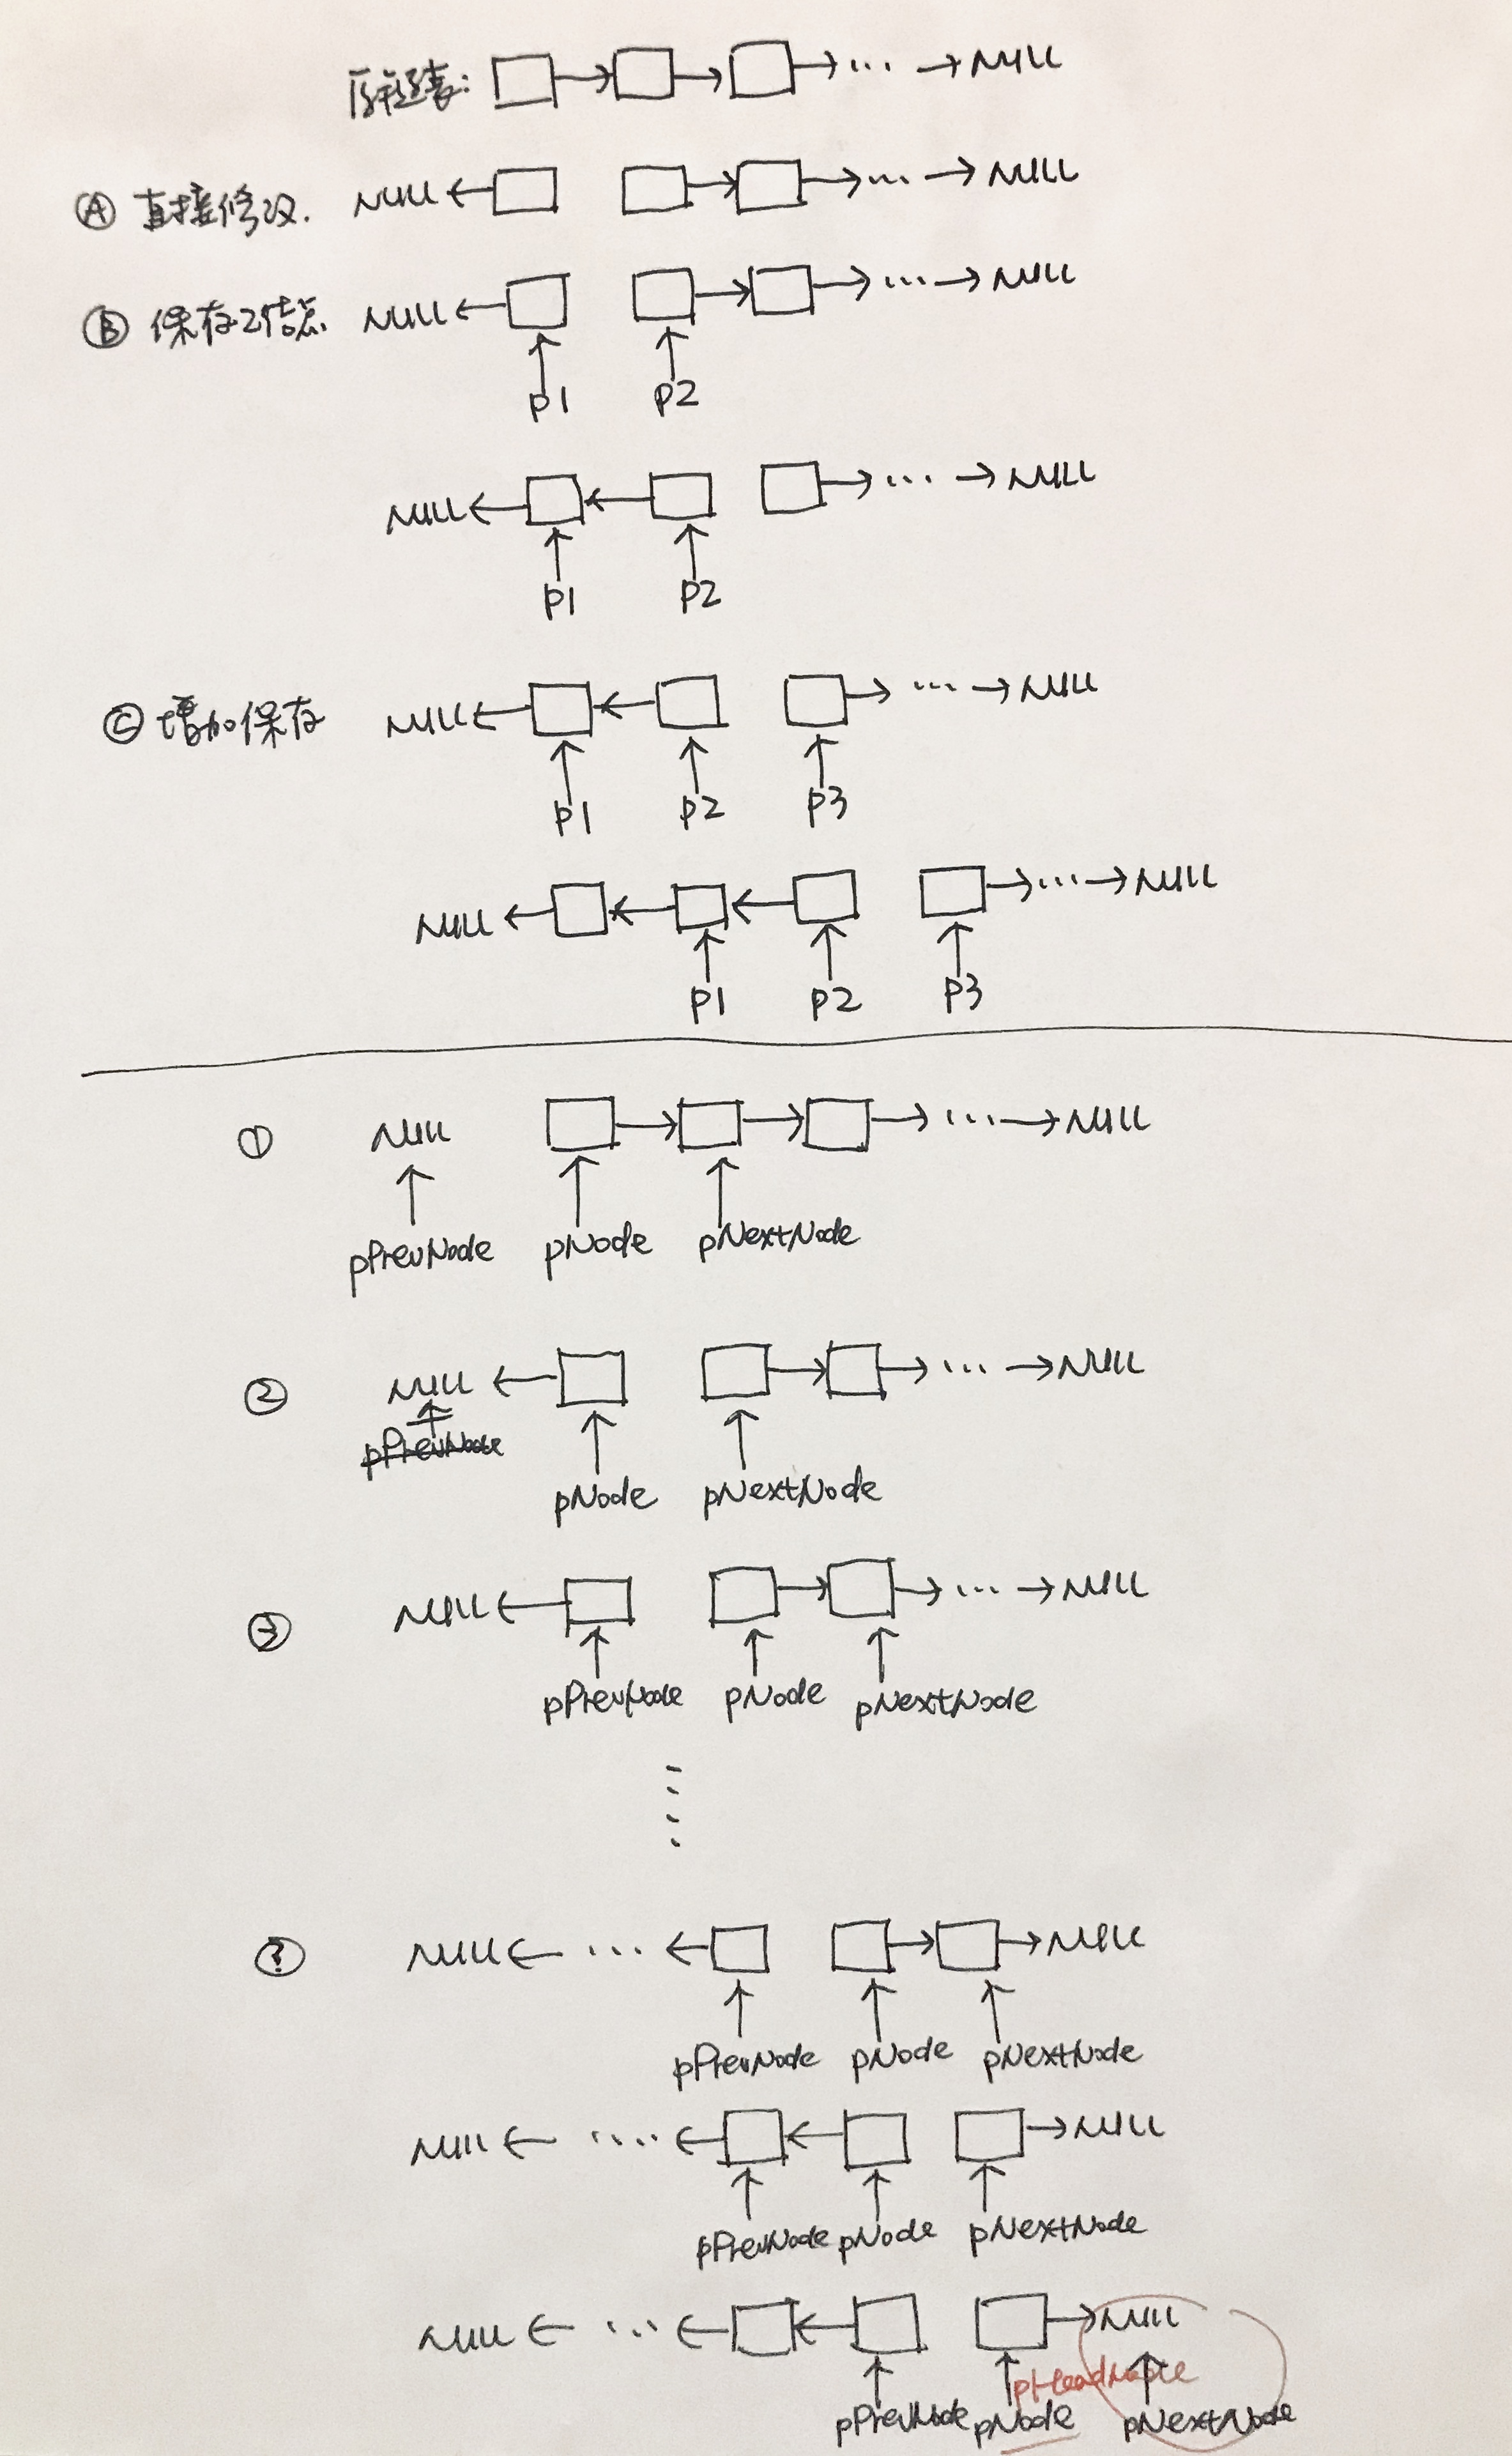 原链表: … NULL
Ⓐ 直接修改. NULL … NULL
Ⓑ 保存2结点. NULL … NULL
p1 p2
NULL … NULL
p1 p2
Ⓒ 增加保存 NULL … NULL
p1 p2 p3
NULL … NULL
p1 p2 p3
① NULL … NULL
pPrevNode pNode pNextNode
② NULL … NULL
pPrevNode
pNode pNextNode
③ NULL … NULL
pPrevNode pNode pNextNode
? NULL … NULL
pPrevNode pNode pNextNode
NULL … NULL
pPrevNode pNode pNextNode
NULL … NULL
pHeadNode
pPrevNode pNode pNextNode